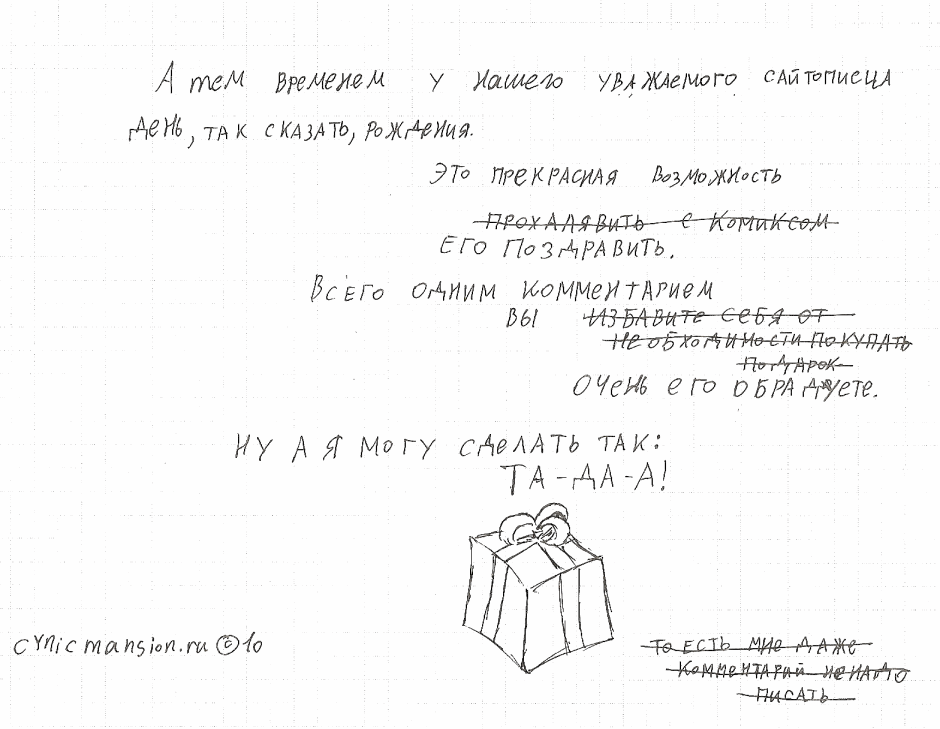 А тем временем у нашего уважаемого сайтописца
день, так сказать, рождения.
Это прекрасная возможность
прохалявить с комиксом
его поздравить.
Всего одним комментарием
вы избавите себя от
необходимости покупать
подарок
очень его обрадуете.
Ну а я могу сделать так:
ТА-ДА-А!
cynicmansion.ru ©10
то есть мне даже
комментарий не надо
писать